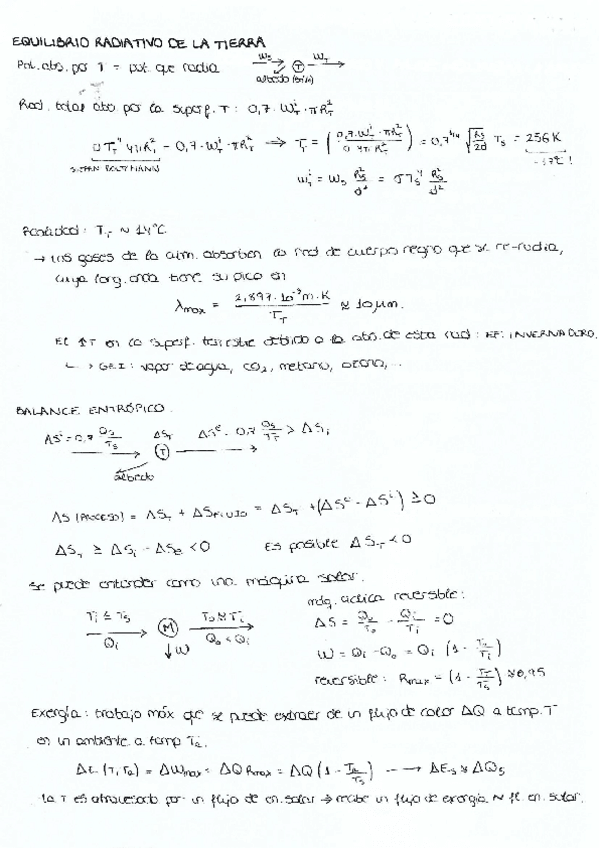 EQUILIBRIO RADIATIVO DE LA TIERRA
Pot. abs. por T = pot. que radia W_S → (T) W_T →
albedo (30%)
Rad. total abs por la superf. T: 0,7 · W_T^i · πR_T^2
σT_T^4 4πR_T^2 = 0,7 · W_T^i · πR_T^2 → T_T = (0,7·W_T^i·πR_T^2 / σ 4πR_T^2) = 0,7^{1/4} √(R_S/2d) T_S = 256 K
STEFAN BOLTZMANN -17°C!
W_T^i = W_S R_S^2/d^2 = σT_S^4 R_S^2/d^2
Realidad: T_T ~ 14°C
→ Los gases de la atm. absorben la rad de cuerpo negro que se re-radia,
cuya long. onda tiene su pico en
λmax = 2,897·10^-3 m·K / T_T ≈ 10 μm.
El ↑T en la superf. terrestre debido a la abs. de esta rad: EF. INVERNADERO.
↳ GEI: vapor de agua, CO2, metano, ozono, ...
BALANCE ENTRÓPICO.
ΔS^i = 0,7 Q_S/T_S → ΔS_T (T) ΔS^e = 0,7 Q_S/T_T > ΔS_i →
albedo
ΔS (PROCESO) = ΔS_T + ΔS FLUJO = ΔS_T + (ΔS^e - ΔS^i) ≥ 0
ΔS_T ≥ ΔS_i - ΔS_e < 0 Es posible ΔS_T < 0
Se puede entender como una máquina solar.
T_i ≤ T_S → Q_i (M) T_o ≈ T_T → Q_o < Q_i ↓W
máq. cíclica reversible:
ΔS = Q_o/T_o - Q_i/T_i = 0
W = Q_i - Q_o = Q_i (1 - T_o/T_i)
reversible: Rmax = (1 - T_T/T_S) ≈ 0,95
Exergía: trabajo máx que se puede extraer de un flujo de calor ΔQ a temp. T
en un ambiente a temp Ta.
ΔE (T, Ta) = ΔWmax = ΔQ Rmax = ΔQ (1 - Ta/T_S) --→ ΔE_S ≈ ΔQ_S
La T es atravesada por un flujo de en. solar → recibe un flujo de exergía ~ fl. en. solar.